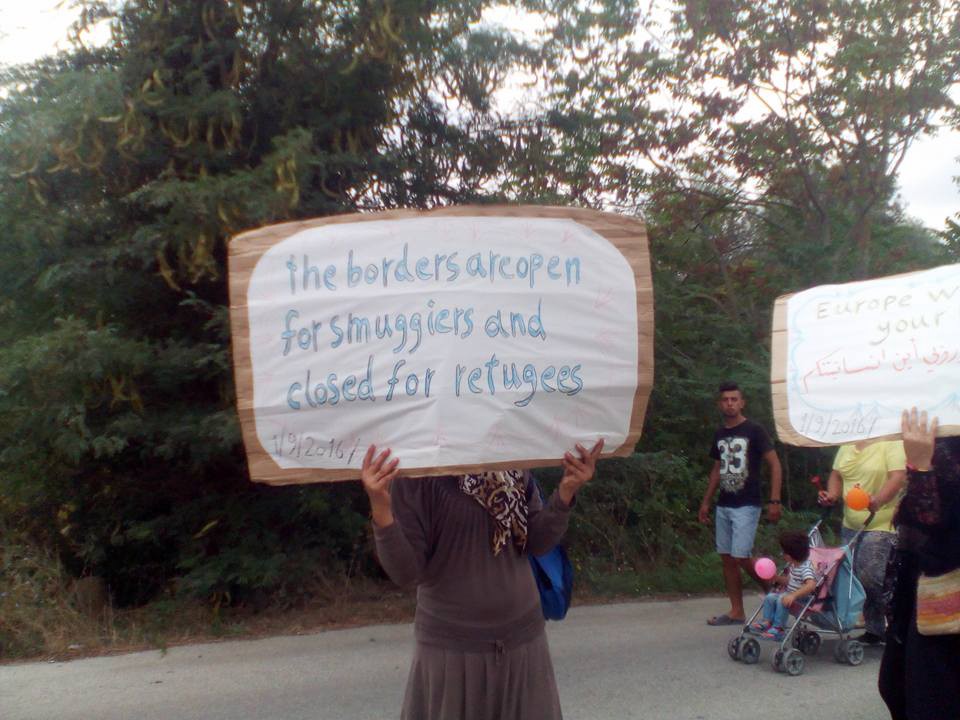 the borders are open
for smuggiers and
closed for refugees
1/9/2016/
Europe
your
أين انسانيتكم
1/9/2016/
33